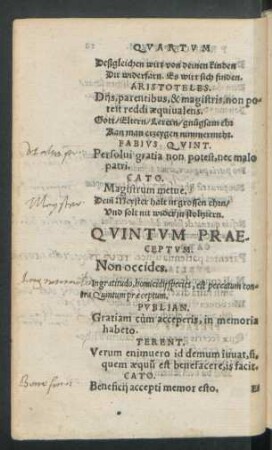 QVARTVM
Desgleichen wirt von deinen kinden
Dir widerfarn. Es wirt sich finden.
ARISTOTELES.
Dijs, parentibus, & magistris, non po-
test reddi æquiualens.
Gott / Eltern / Lerern / gnůgsam ehr
Kan man erzeygen nimmermehr.
FABIVS QVINT.
Persolui gratia non potest, nec malo
patri.
CATO.
Magistrum metue.
Dein Meyster halt in grossen ehrn /
Vnd solt nit wider in stoltziern.
QVINTVM PRAE-
CEPTVM.
Non occides.
Ingratitudo, homicidij species, est peccatum con-
tra Quintum præceptum.
PVBLIAN.
Gratiam cùm acceperis, in memoria
habeto.
TERENT.
Verum enimuero id demum iuuat, si,
quem æquũ est benefacere, is facit.
CATO.
Beneficij accepti memor esto.